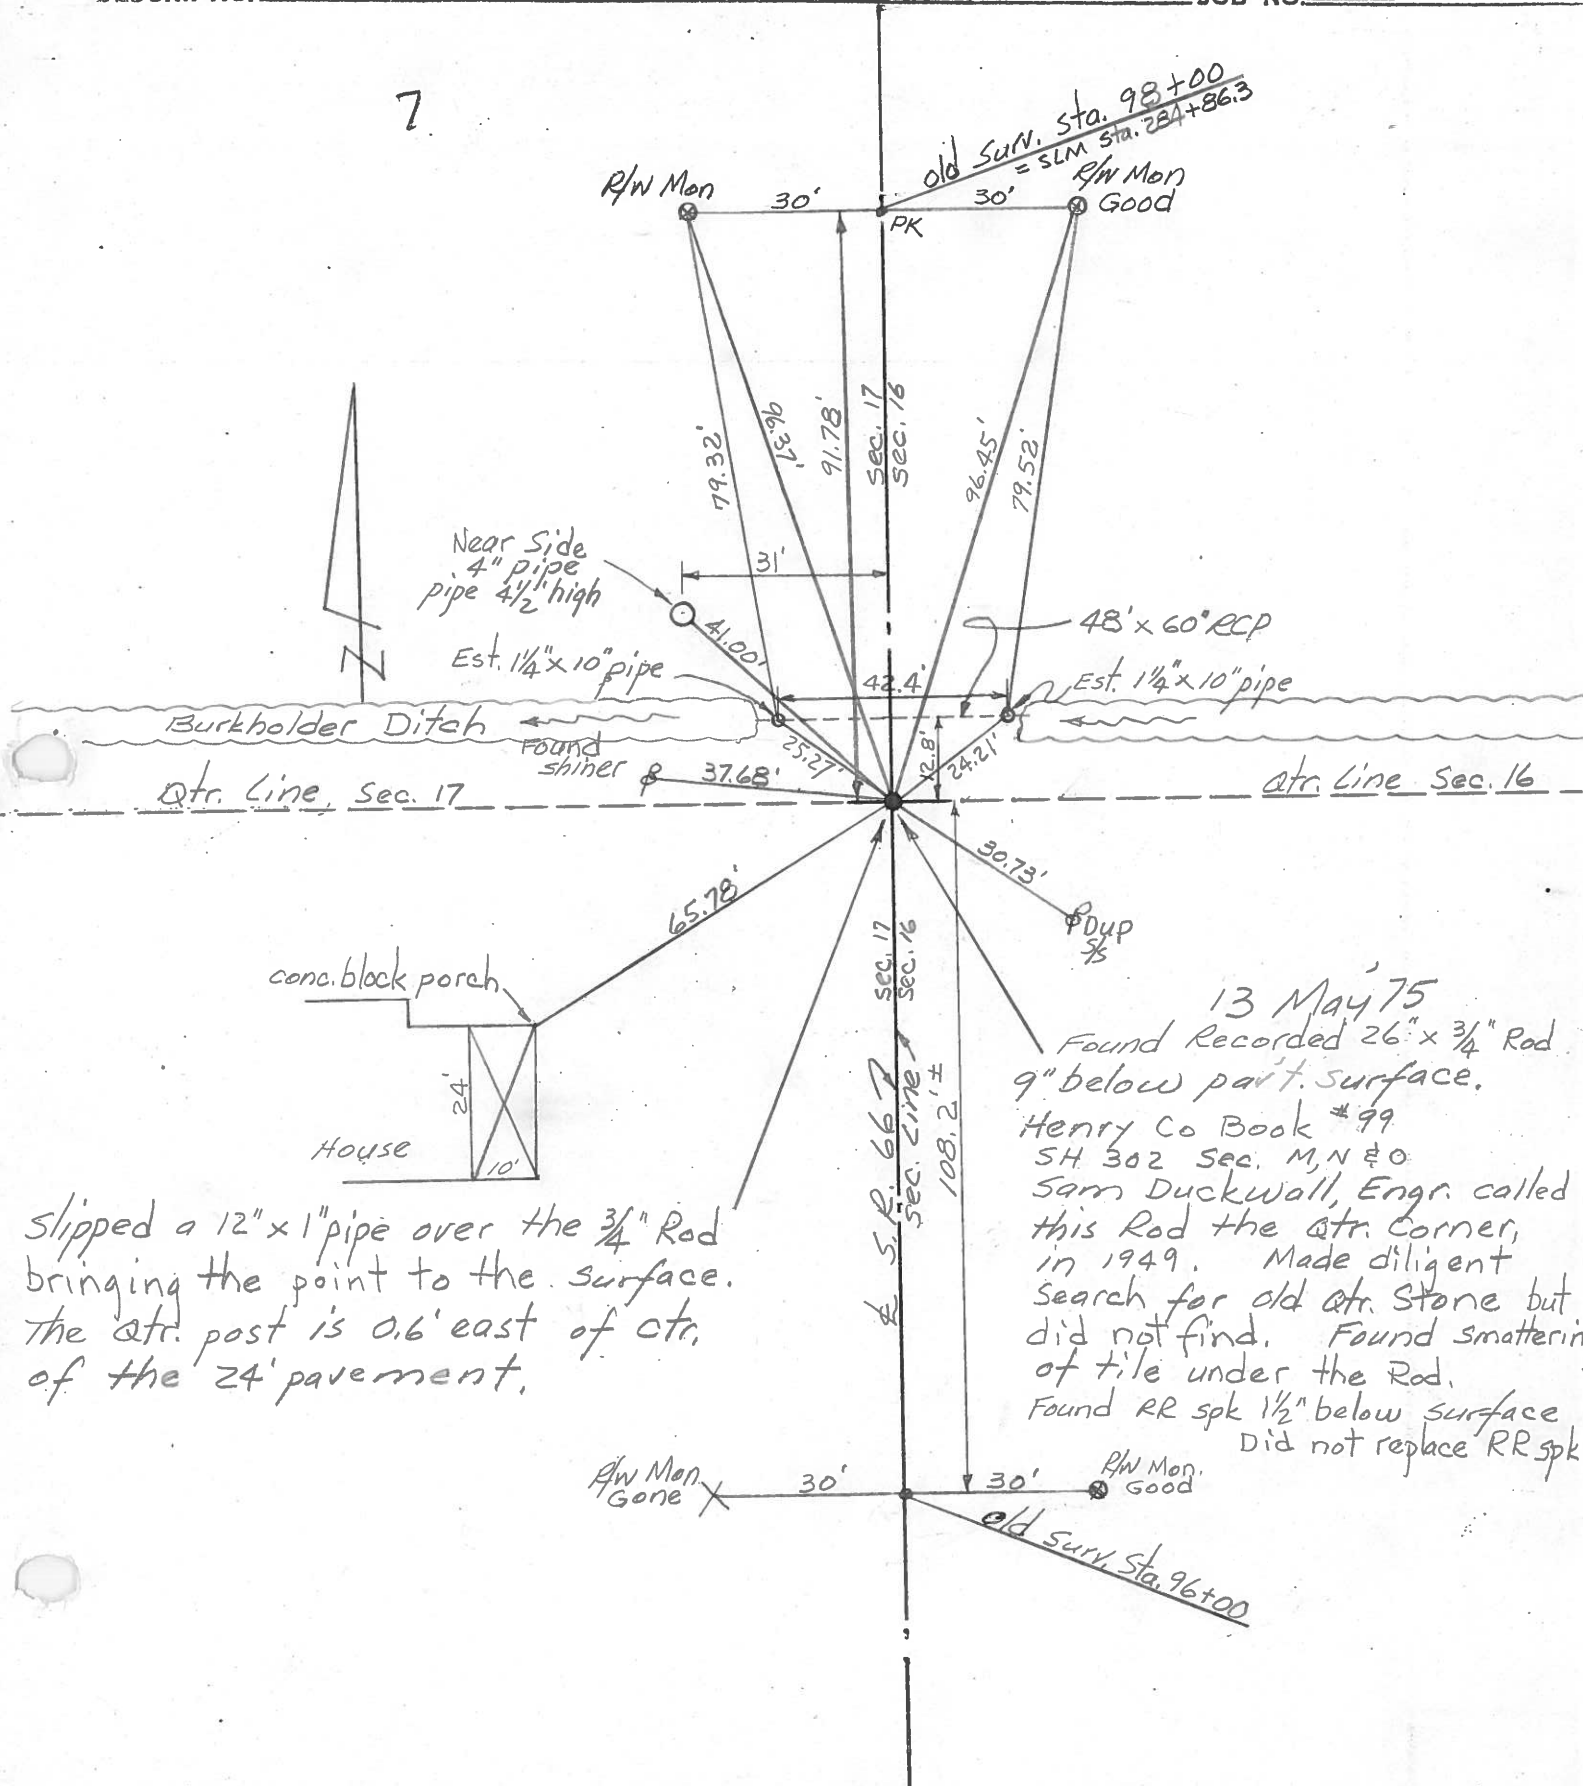 JOB NO.
7
old Surv. Sta. 98+00
= SLM Sta. 284+86.3
R/W Mon
30'
30'
R/W Mon
Good
PK
79.32'
96.37'
91.78'
Sec. 17
Sec. 16
96.45'
79.52'
Near Side
4" pipe
pipe 4½' high
31'
41.00'
48' x 60" RCP
Est. 1¼" x 10" pipe
42.4'
Est. 1¼" x 10" pipe
N
Burkholder Ditch
Found
shiner
37.68'
25.27'
12.8'
24.21'
Qtr. Line, Sec. 17
Qtr. Line Sec. 16
30.73'
65.78'
PDup
S/S
conc. block porch
24'
10'
House
Sec. 17
Sec. 16
℄ S.R. 66
Sec. Line
108.2' ±
13 May '75
Found Recorded 26" x ¾" Rod
9" below pav't. surface.
Henry Co Book #99
SH 302 Sec. M, N & O
Sam Duckwall, Engr. called
this Rod the Qtr. Corner,
in 1949. Made diligent
Search for old Qtr. Stone but
did not find. Found smatterin
of tile under the Rod.
Found RR spk 1½" below surface
Did not replace RR spk
Slipped a 12" x 1" pipe over the ¾" Rod
bringing the point to the surface.
The Qtr. post is 0.6' east of ctr.
of the 24' pavement.
R/W Mon.
Gone
30'
30'
R/W Mon.
Good
old Surv. Sta. 96+00